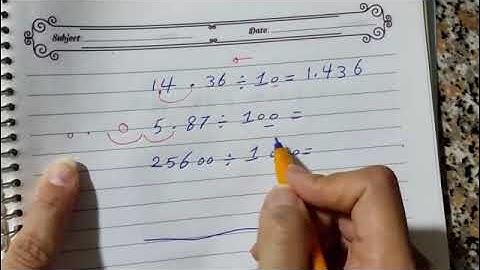 Subject: Date:
14.36 ÷ 10 = 1.436
0.05.87 ÷ 100 =
25600 ÷ 1000=